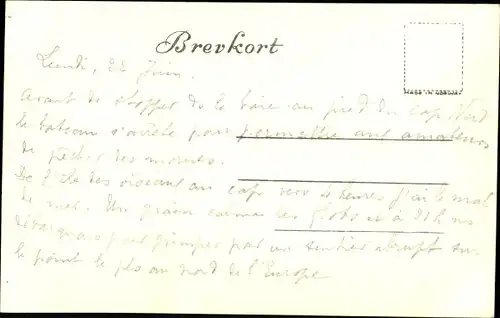 Brevkort
MADE IN GERMANY
Lundi, 22 Juin.
Avant de stopper ds la baie au pied du cap Nord
le bateau s'arrête pour permettre aux amateurs
de pêcher des morues.
De l'île des oiseaux au cap vers 4 heures j'ai le mal
de mer. Un grain calme les flots et à 21h ns
débarquons pour grimper par un sentier abrupt sur
le point le plo au nord de l'Europe